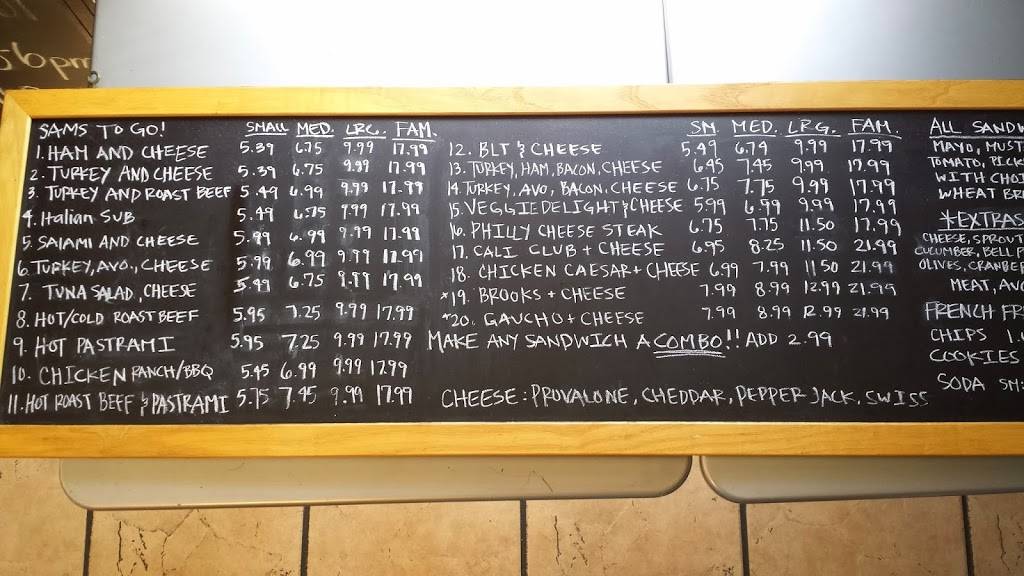 26pm
SAMS TO GO! SMALL MED. LRG. FAM.
1. HAM AND CHEESE 5.39 6.75 9.99 17.99
2. TURKEY AND CHEESE 5.39 6.75 9.99 17.99
3. TURKEY AND ROAST BEEF 5.49 6.99 9.99 17.99
4. Italian SUB 5.49 6.75 9.99 17.99
5. SALAMI AND CHEESE 5.99 6.99 9.99 17.99
6. TURKEY, AVO., CHEESE 5.99 6.99 9.99 17.99
7. TUNA SALAD, CHEESE 5.99 6.75 9.99 17.99
8. HOT/COLD ROAST BEEF 5.95 7.25 9.99 17.99
9. HOT PASTRAMI 5.95 7.25 9.99 17.99
10. CHICKEN RANCH/BBQ 5.45 6.99 9.99 17.99
11. HOT ROAST BEEF & PASTRAMI 5.75 7.45 9.99 17.99
SM. MED. LRG. FAM.
12. BLT & CHEESE 5.49 6.79 9.99 17.99
13. TURKEY, HAM, BACON, CHEESE 6.45 7.45 9.99 17.99
14. TURKEY, AVO, BACON, CHEESE 6.75 7.75 9.99 17.99
15. VEGGIE DELIGHT & CHEESE 5.99 6.99 9.99 17.99
16. PHILLY CHEESE STEAK 6.75 7.75 11.50 17.99
17. CALI CLUB + CHEESE 6.95 8.25 11.50 21.99
18. CHICKEN CAESAR + CHEESE 6.99 7.99 11.50 21.99
*19. BROOKS + CHEESE 7.99 8.99 12.99 21.99
*20. GAUCHO + CHEESE 7.99 8.99 12.99 21.99
MAKE ANY SANDWICH A COMBO!! ADD 2.99
CHEESE: PROVALONE, CHEDDAR, PEPPER JACK, SWISS
ALL SANDW
MAYO, MUST
TOMATO, PICK
WITH CHOI
WHEAT BR
*EXTRAS
CHEESE, SPROUT
CUCUMBER, BELL P
OLIVES, CRANBER
MEAT, AVO
FRENCH FR
CHIPS 1.
COOKIES
SODA SM: